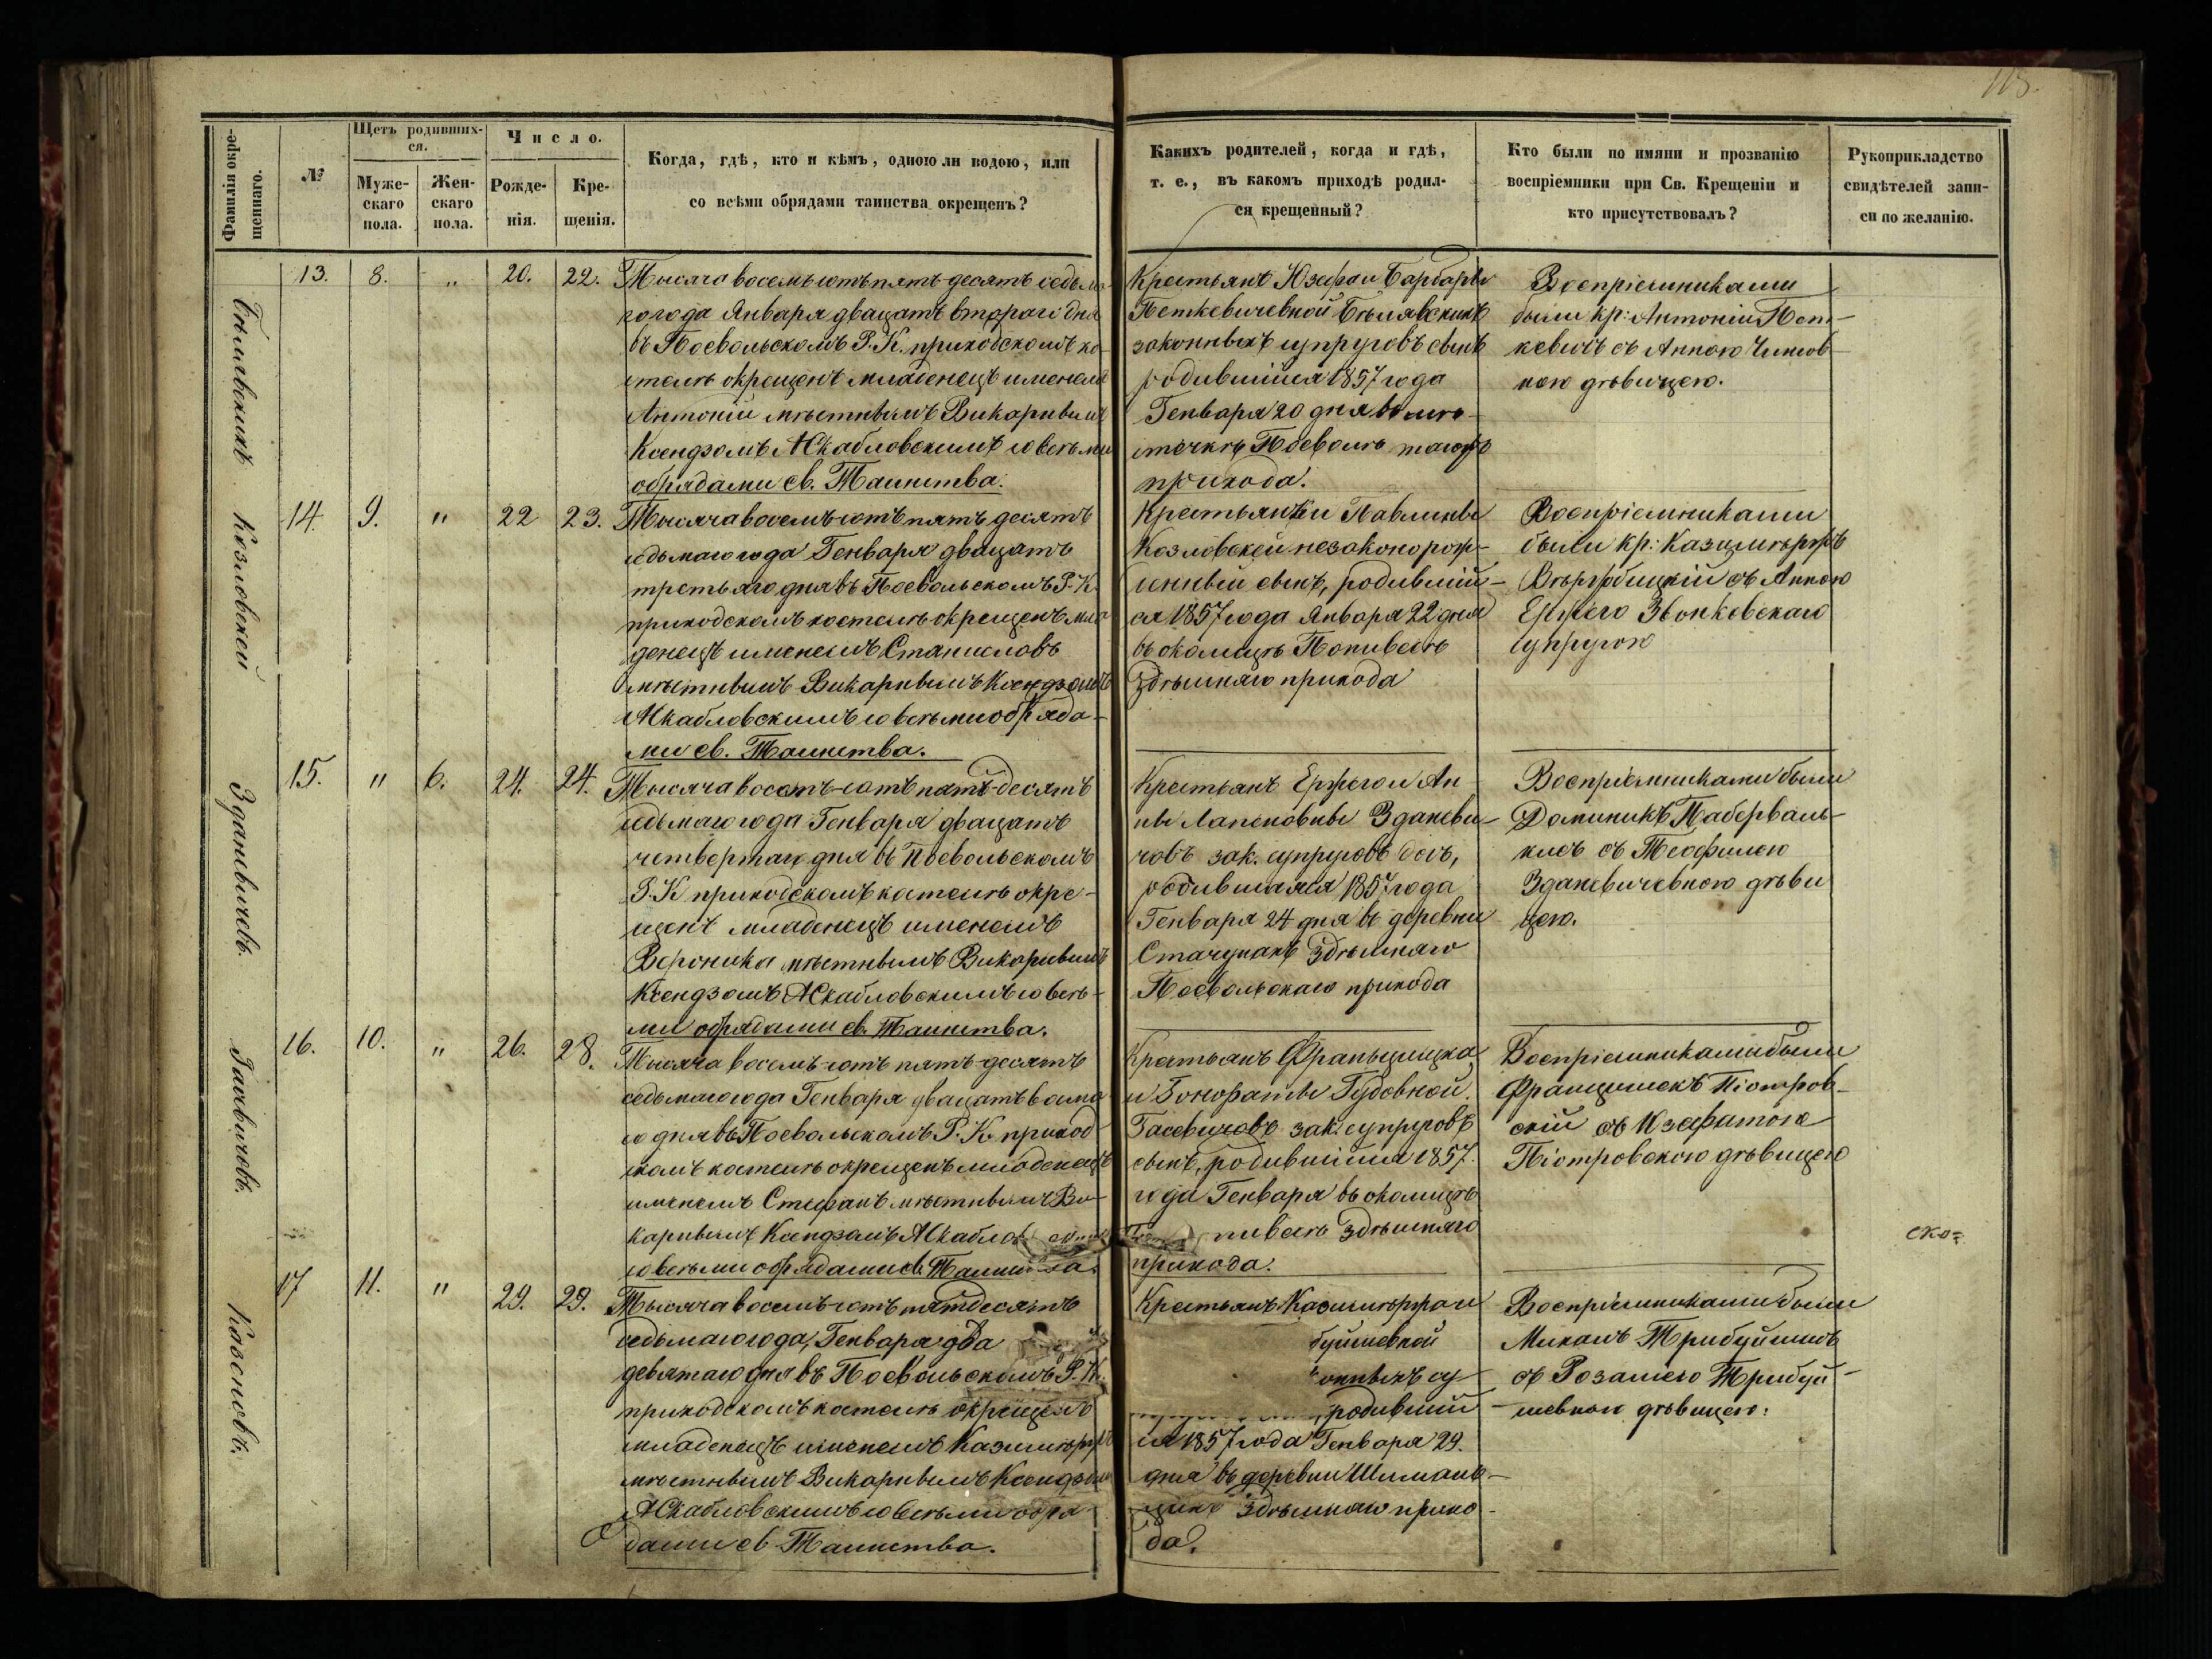 118.
Фамилія окре-
щеннаго.
№
Щетъ родивших-
ся.
Муже-
скаго
пола.
Жен-
скаго
пола.
Число.
Рожде-
нія.
Кре-
щенія.
Когда, гдѣ, кто и кѣмъ, одною ли водою, или
со всѣми обрядами таинства окрещенъ?
Какихъ родителей, когда и гдѣ,
т. е., въ какомъ приходѣ родил-
ся крещенный?
Кто были по имяни и прозванію
воспріемники при Св. Крещеніи и
кто присутствовалъ?
Рукоприкладство
свидѣтелей запи-
си по желанію.
Бѣлявскихъ
13. 8. " 20. 22.
Тысяча восемъ сотъ пятъ десятъ седьма-
го года Января двацатъ втораго дня
въ Посвольскомъ Р. К. приходскомъ ко-
стелѣ окрещенъ младенецъ именемъ
Антоній мѣстнымъ Викарнымъ
Ксендзомъ АСкабловскимъ со всѣми
обрядами св. Таинства.
Крестьянъ Юзефа и Барбары
Петкевичевной Бѣлявскихъ
законныхъ супруговъ сынъ
родившійся 1857 года
Генваря 20 дня въ мѣ-
стечкѣ Посволѣ тагожъ
прихода.
Воспріемниками
были кр: Антоній Пет-
кевичъ съ Анною
ною дѣвицею.
Козловскей
14. 9. " 22 23.
Тысяча восемъ сотъ пятъ десятъ
седьмаго года Генваря двацатъ
третьяго дня въ Посвольскомъ Р. К.
приходскомъ костелѣ окрещенъ мла
денецъ именемъ Станиславъ
мѣстнымъ Викарнымъ Ксендзомъ
АСкабловскимъ со всѣми обряда-
ми св. Таинства.
Крестьянки Павлины
Козловскей незаконорож-
денный сынъ, родившій-
ся 1857 года Января 22 дня
въ околицѣ Попивесѣ
Здѣшняго прихода
Воспріемниками
были кр: Казимѣржъ
Вѣржбицкій съ Анною
Ержего Звонковскаго
супругою
Зданевичевъ.
15. " 6. 24. 24.
Тысяча восемъ-сотъ пятъ-десятъ
седьмаго года Генваря двацатъ
четвертаго дня въ Посвольскомъ
Р. К приходскомъ костелѣ окре-
щенъ младенецъ именемъ
Вероника мѣстнымъ Викарнымъ
Ксендзомъ АСкабловскимъ со всѣ-
ми обрядами св. Таинства.
Крестьянъ Ержего и Ан
ны Лапеновны Зданеви-
човъ зак. супруговъ дочъ,
родившаяся 1857 года
Генваря 24 дня въ деревни
Стачунахъ Здѣшняго
Посвольскаго прихода
Воспріемниками были
Доминикъ Паберваль-
кисъ съ Теофилею
Зданевичевною дѣви
цею.
Гасевичовъ.
16. 10. " 26. 28.
Тысяча восемъ-сотъ пятъ-десятъ
седьмаго года Генваря двацатъ восма
го дня въ Посвольскомъ Р. К. приход
скомъ костелѣ окрещенъ младенецъ
именемъ Стефанъ мѣстнымъ Ви-
карнымъ Ксендзомъ АСкаблов
со всѣми обрядами св. Таин ва.
Крестьянъ Францишка
и Гонораты Гудовной
Гасевичовъ зак. супруговъ
сынъ, родившійся 1857.
года Генваря въ околицѣ
пивесѣ здѣшняго
прихода.
Воспріемниками были
Францишекъ Піотров-
скій съ Юзефатою
Піотровскою дѣвицею
ско=
Касновъ.
17 11. " 29. 29.
Тысяча восемъ-сотъ пятдесятъ
седьмаго года, Генваря два
девятаго дня въ Посвольскомъ Р. К.
приходскомъ костелѣ окрещенъ
младенецъ именемъ Казимѣржъ
мѣстнымъ Викарнымъ Ксендзомъ
АСкабловскимъ со всѣми обря-
дами св Таинства.
Крестьянъ Казимѣржа и
буйшевной
онныхъ су-
родивший-
ся 1857 года Генваря 29.
дня въ деревни Шиман-
цихъ здѣшняго прихо-
да.
Воспріемниками были
Михалъ Трибуйшисъ
съ Розаліею Трибуй-
шевною дѣвицею: